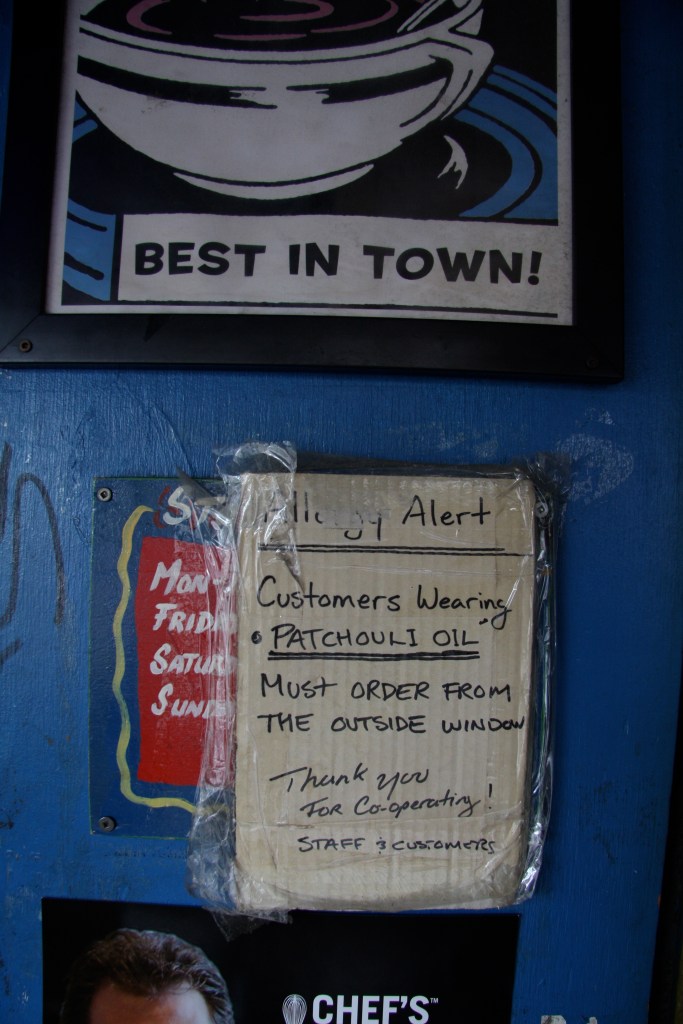 BEST IN TOWN!
Allergy Alert
Customers Wearing
• PATCHOULI OIL
MUST ORDER FROM
THE OUTSIDE WINDOW
Thank you
FOR CO-operating!
STAFF & CUSTOMERS
MON-
FRID
SATUR
SUND
CHEF'S™